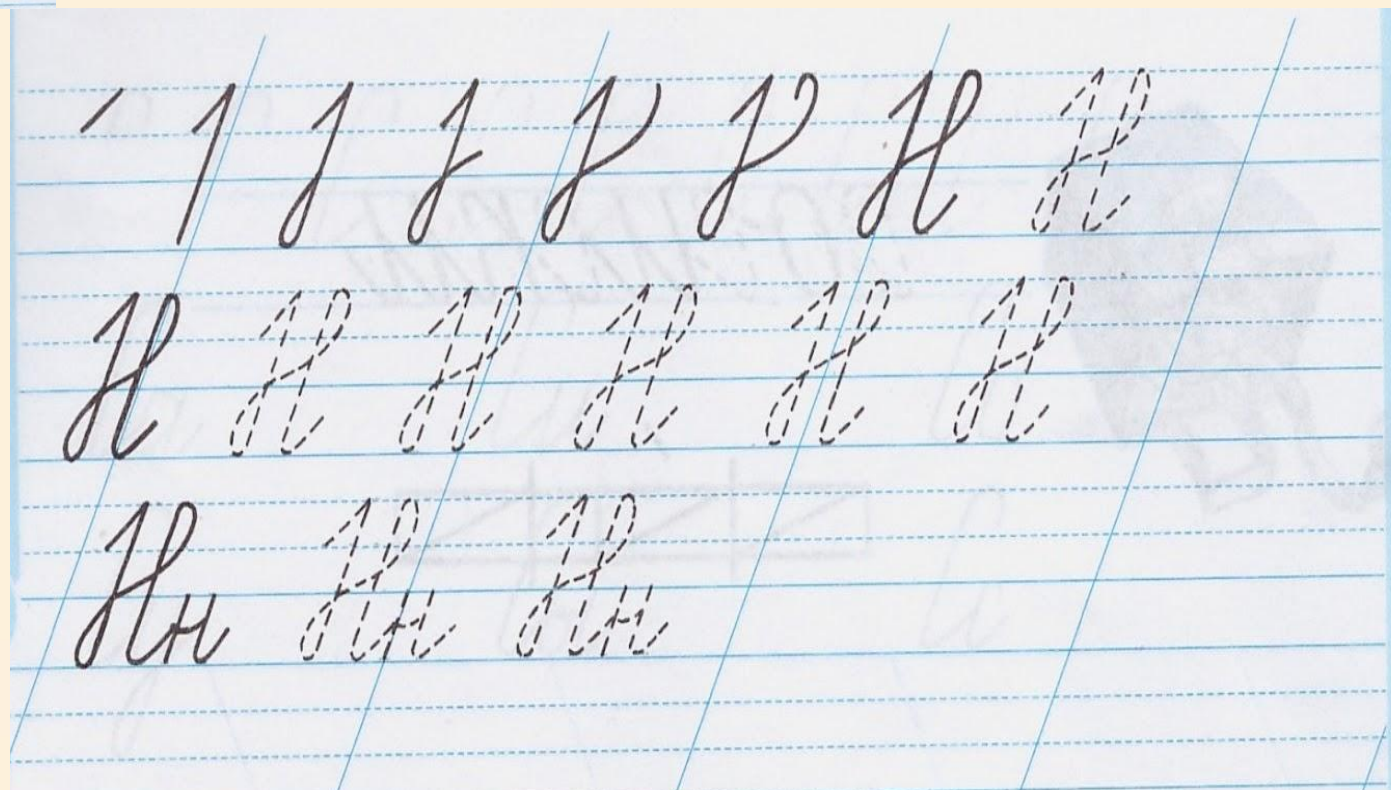 Н Н
Н Н Н Н Н Н
Нн Нн Нн